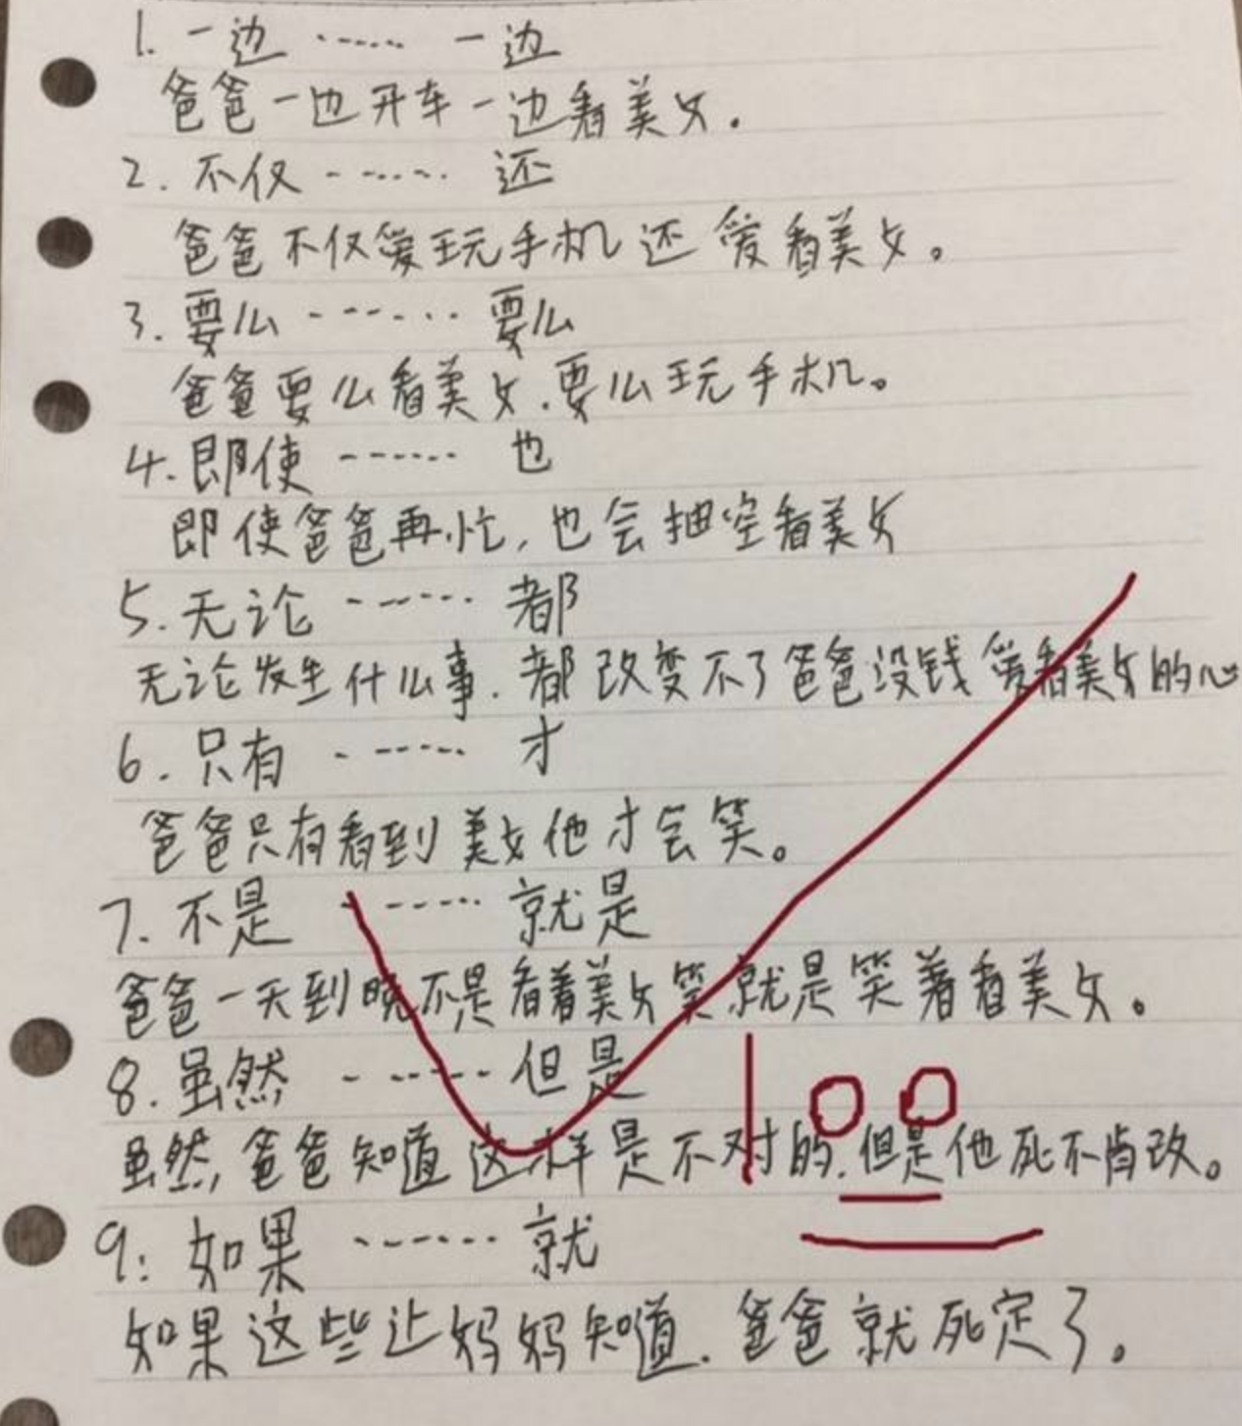 1. 一边 …… 一边
爸爸一边开车一边看美女.
2. 不仅 …… 还
爸爸不仅爱玩手机还爱看美女。
3. 要么 …… 要么
爸爸要么看美女.要么玩手机。
4. 即使 …… 也
即使爸爸再忙,也会抽空看美女
5. 无论 …… 都
无论发生什么事.都改变不了爸爸没钱爱看美女的心
6. 只有 …… 才
爸爸只有看到美女他才会笑。
7. 不是 …… 就是
爸爸一天到晚不是看着美女笑就是笑着看美女。
8. 虽然 …… 但是
100
虽然,爸爸知道这样是不对的.但是他死不肯改。
9: 如果 …… 就
如果这些让妈妈知道.爸爸就死定了。